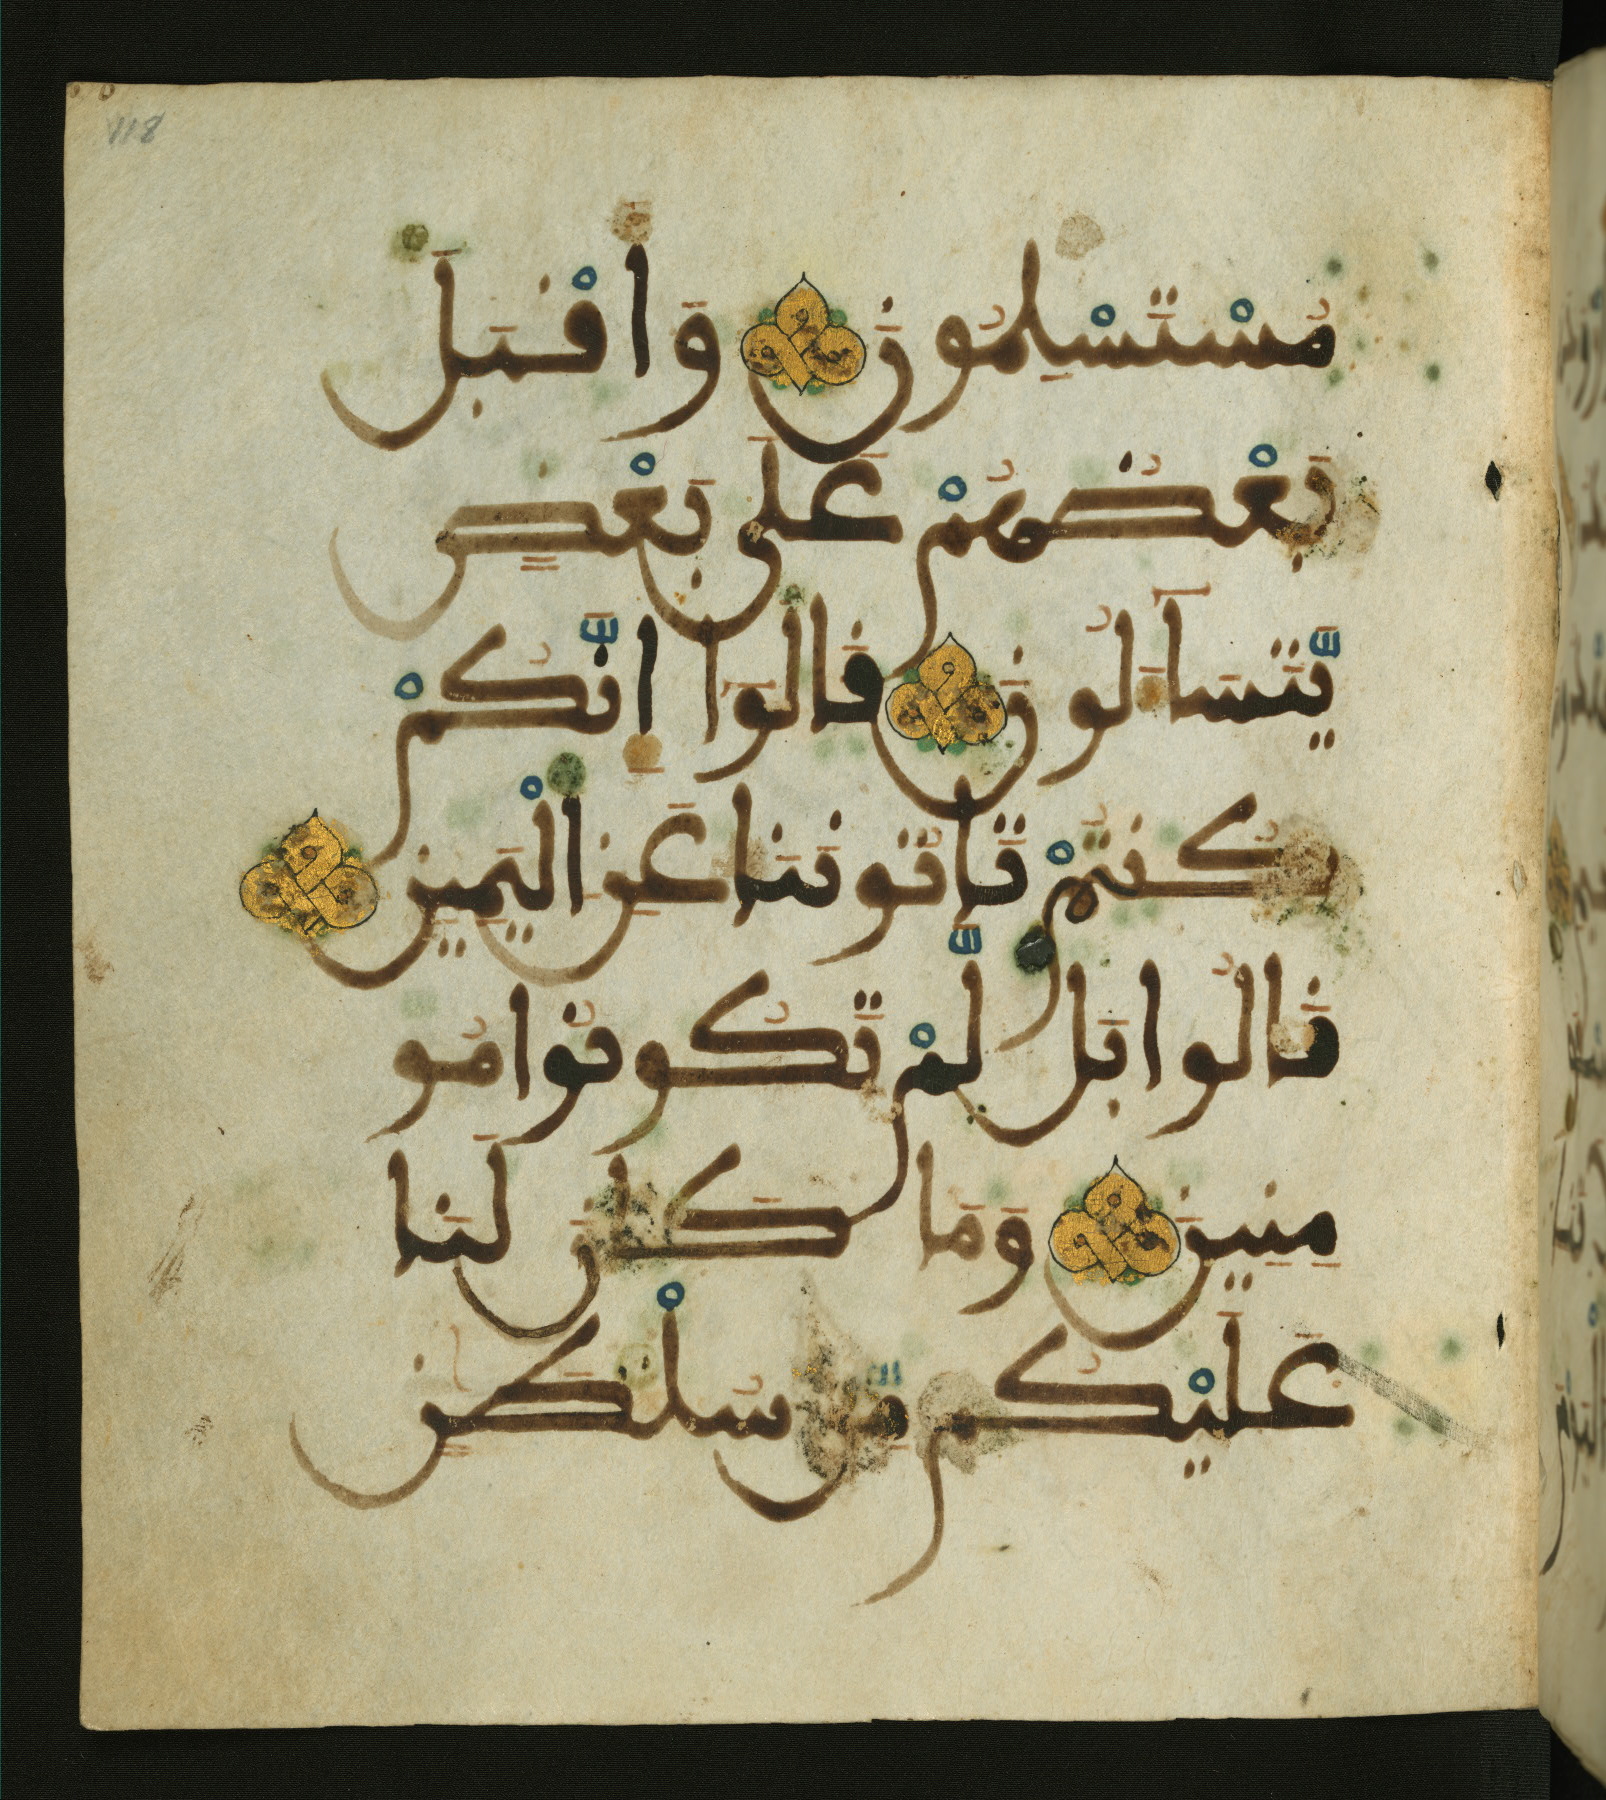 118
مُسْتَسْلِمُونَ وَأَقْبَلَ
بَعْضُهُمْ عَلَى بَعْضٍ
يَّتَسَآلُونَ قَالُوا إِنَّكُمْ
كُنتُمْ تَاتُونَنَا عَنِ الْيَمِينِ
قَالُوا بَل لَّمْ تَكُونُوا مُو
مِنِينَ وَمَا كَانَ لَنَا
عَلَيْكُم مِّن سُلْطَٰنٍ